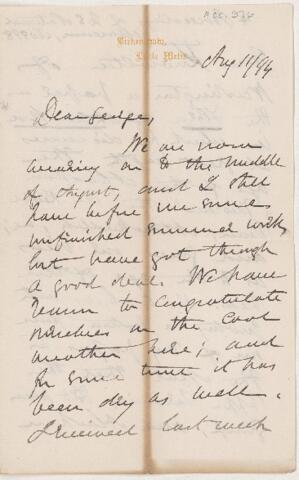 Birkenshaw,
Little Metis
Aug 11/94
Dear George,
We are now
wearing on to the middle
of August, and I still
have before me some
unfinished summer work,
but have got through
a good deal. We have
reason to congratulate
ourselves on the cool
weather here; and
for some time it has
been dry as well.
I received last week